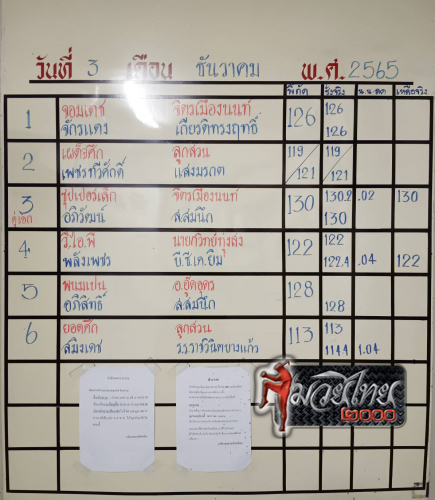 วันที่ 3 เดือน ธันวาคม พ.ศ. 2565
พิกัด ชั่งจริง น.น.ลด เหลือจริง
1 จอมเดช จิตรเมืองนนท์ 126 126
จักรแดง เกียรติทรงฤทธิ์ 126
2 เผด็จศึก ลูกสวน 119 119
เพชรทวีศักดิ์ แสงมรกต 121 121
3 ซุปเปอร์เล็ก จิตรเมืองนนท์ 130 130.2 .02 130
คู่เอก อภิวัฒน์ ส.สมนึก 130
4 วี.ไอ.พี นายกวิทย์ทุ่งสง 122 122
พลังเพชร บี.ซี.เค.ยิม 122.4 .04 122
5 พนมแปน อ.อู๊ดอุดร 128
อภิสิทธิ์ ส.สมนึก 128
6 ยอดศึก ลูกสวน 113 113
สมิงเดช ร.ร.ราชวินิตบางแก้ว 114.4 1.04
มวยไทย
๒๐๐๐